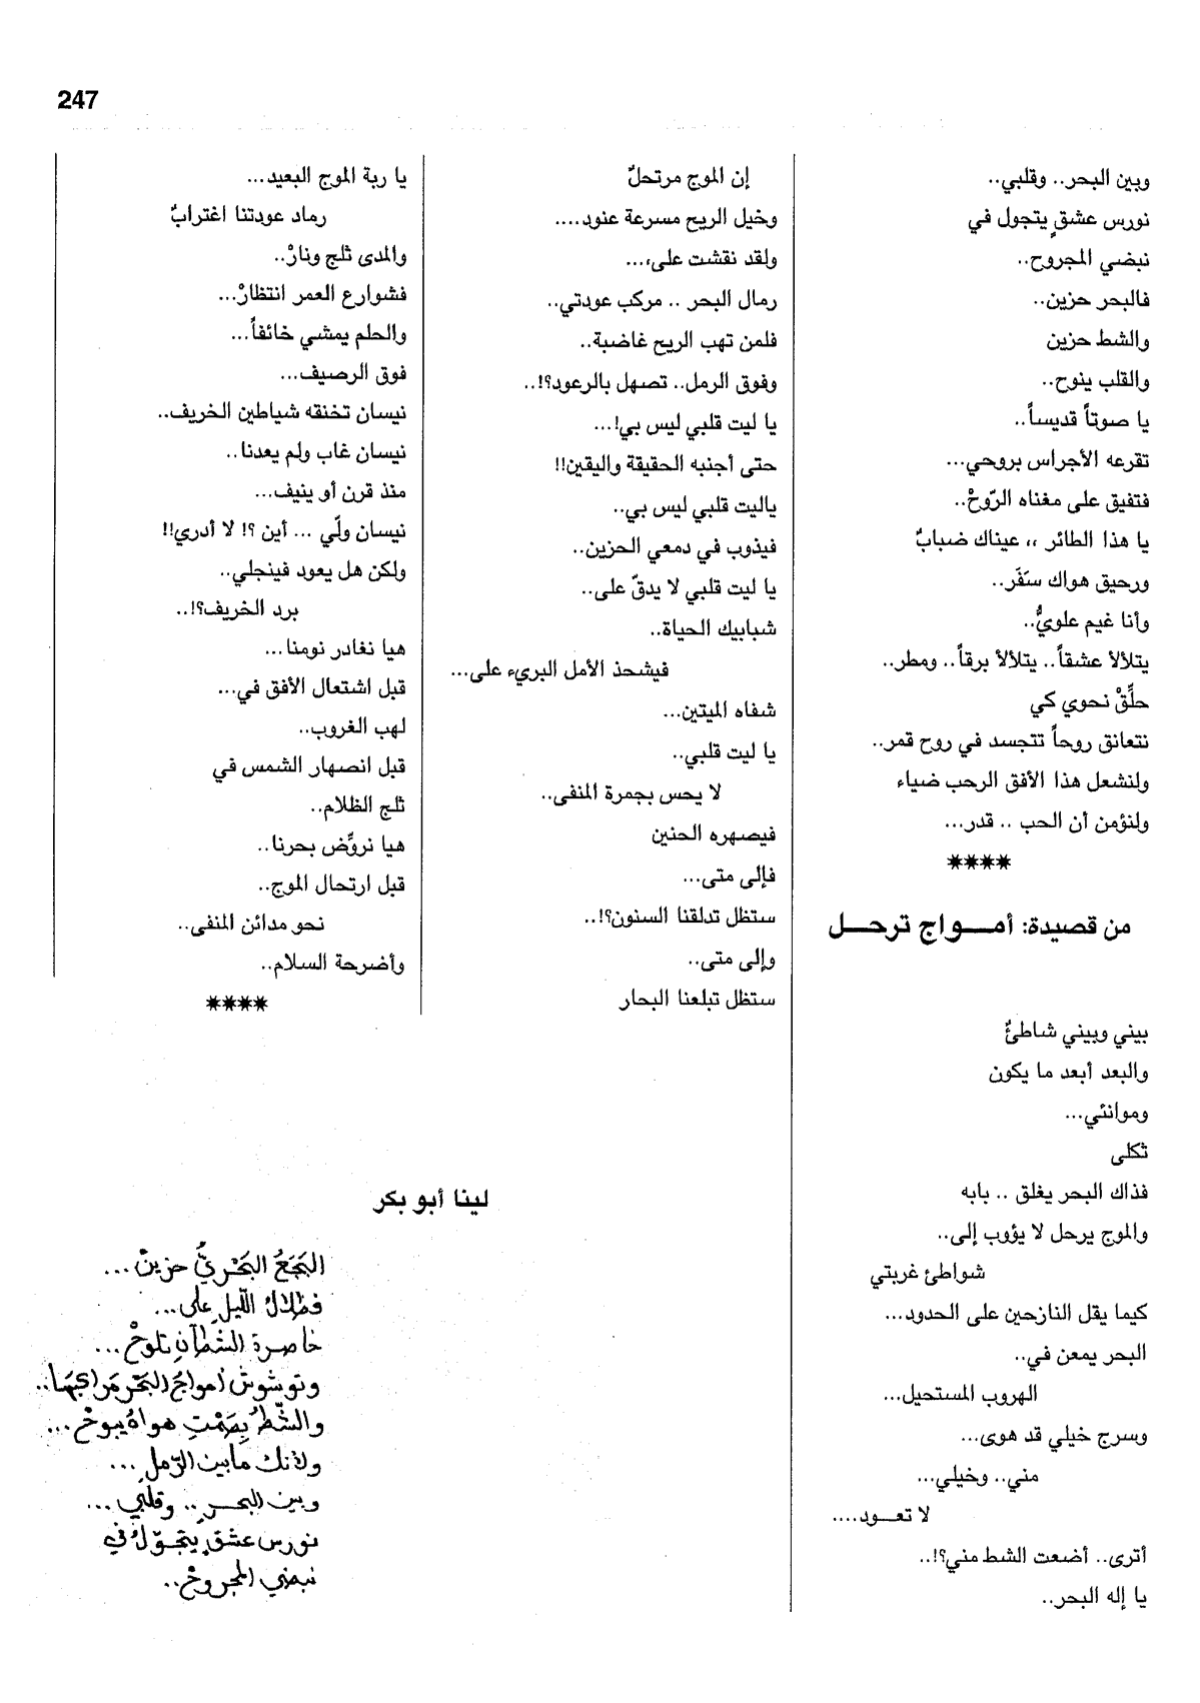 247
وبين البحر.. وقلبي..
نورس عشقٍ يتجول في
نبضي المجروح..
فالبحر حزين..
والشط حزين
والقلب ينوح..
يا صوتاً قديساً..
تقرعه الأجراس بروحي...
فتفيق على مغناه الرّوحْ..
يا هذا الطائر ،، عيناك ضبابٌ
ورحيق هواك سَفَر..
وأنا غيم علويٌّ..
يتلألأ عشقاً.. يتلألأ برقاً.. ومطر..
حلِّقْ نحوي كي
نتعانق روحاً تتجسد في روح قمر..
ولنشعل هذا الأفق الرحب ضياء
ولنؤمن أن الحب .. قدر...
****
من قصيدة: أمـــواج ترحـــل
بيني وبيني شاطئٌ
والبعد أبعد ما يكون
وموانئي...
ثكلى
فذاك البحر يغلق .. بابه
والموج يرحل لا يؤوب إلى..
شواطئ غربتي
كيما يقل النازحين على الحدود...
البحر يمعن في..
الهروب المستحيل...
وسرج خيلي قد هوى...
مني.. وخيلي...
لا تعـــود....
أترى.. أضعت الشط مني؟!..
يا إله البحر..
إن الموج مرتحلٌ
وخيل الريح مسرعة عنود....
ولقد نقشت على،...
رمال البحر .. مركب عودتي..
فلمن تهب الريح غاضبة..
وفوق الرمل.. تصهل بالرعود؟!..
يا ليت قلبي ليس بي!...
حتى أجنبه الحقيقة واليقين!!
ياليت قلبي ليس بي..
فيذوب في دمعي الحزين..
يا ليت قلبي لا يدقّ على..
شبابيك الحياة..
فيشحذ الأمل البريء على...
شفاه الميتين...
يا ليت قلبي..
لا يحس بجمرة المنفى..
فيصهره الحنين
فإلى متى...
ستظل تدلقنا السنون؟!..
وإلى متى..
ستظل تبلعنا البحار
يا ربة الموج البعيد...
رماد عودتنا اغترابٌ
والمدى ثلج ونارْ..
فشوارع العمر انتظارْ...
والحلم يمشي خائفاً...
فوق الرصيف...
نيسان تخنقه شياطين الخريف..
نيسان غاب ولم يعدنا..
منذ قرن أو ينيف...
نيسان ولّي ... أين ؟! لا أدري!!
ولكن هل يعود فينجلي..
برد الخريف؟!..
هيا نغادر نومنا...
قبل اشتعال الأفق في...
لهب الغروب..
قبل انصهار الشمس في
ثلج الظلام..
هيا نروِّض بحرنا..
قبل ارتحال الموج..
نحو مدائن المنفى..
وأضرحة السلام..
****
لينا أبو بكر
البَجَعُ البَحْريُّ حزينْ...
فظلالُ اللّيلِ على...
خاصرة الشطآنِ تلوحْ...
وتوشوشُ أمواجُ البَحْر مَراكبَها..
والشّطُّ بِصَمْتِ هواهُ يبوحْ...
ولأنك مابين الرّملِ...
وبين البحـــر.. وقلبي...
نورس عشقٍ يتجـوّلُ في
نبضي المجروحْ..